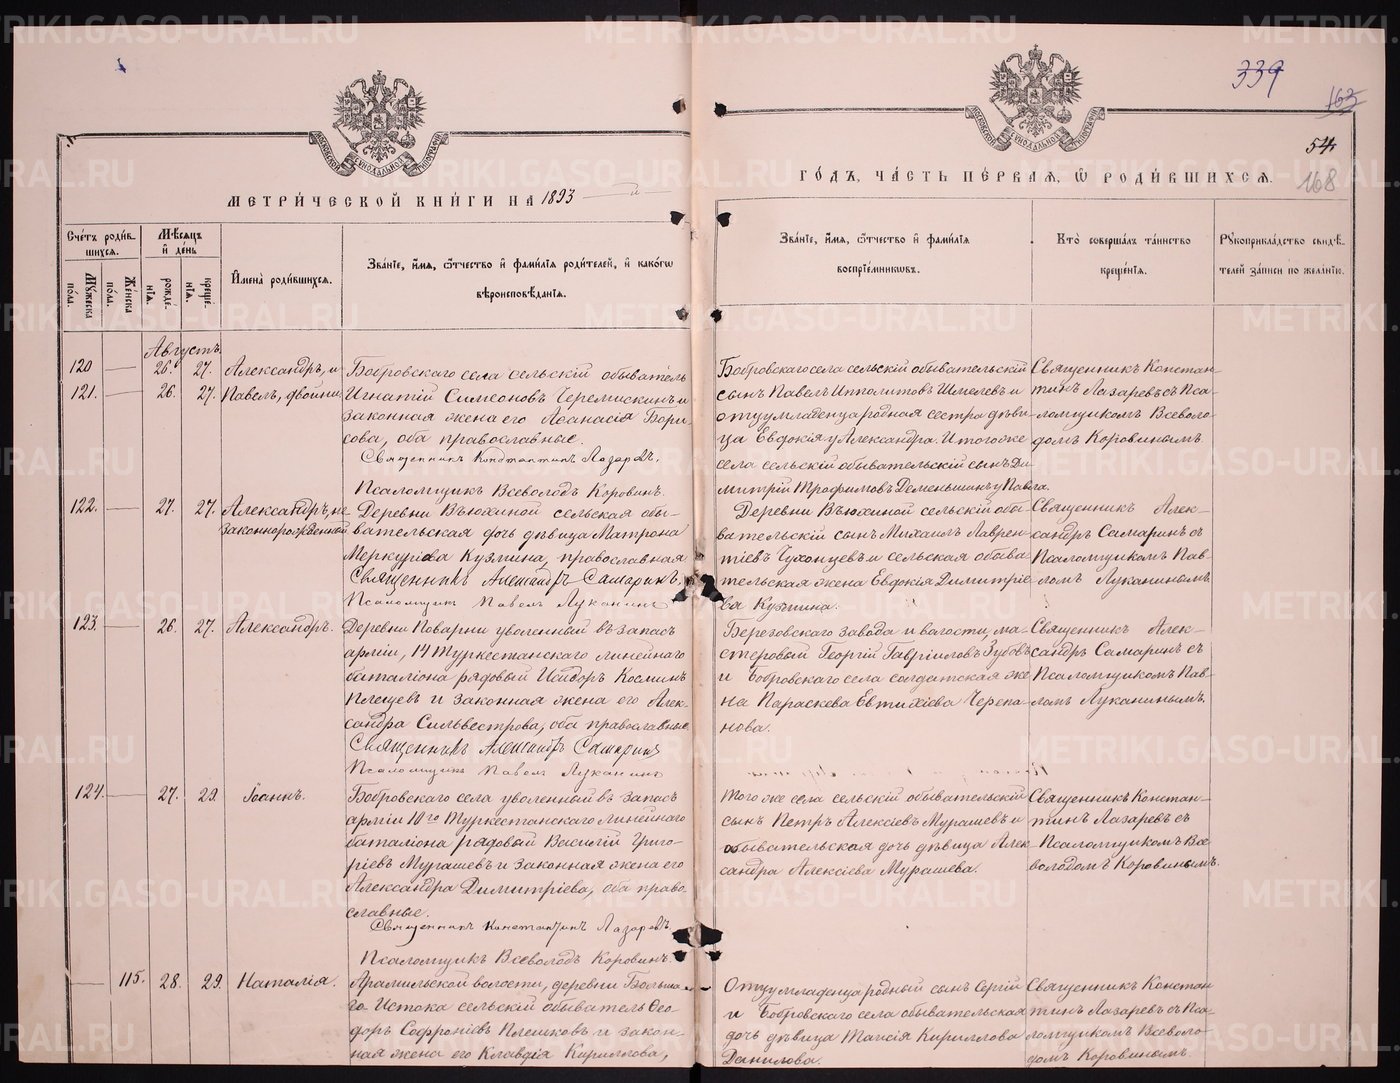 METRIKI.GASO-URAL.RU
339
163
54
168
МЕТРИ́ЧЕСКОЙ КНИ́ГИ НА 1893
ГО́ДЪ, ЧА́СТЬ ПЕ́РВАЯ, Ѽ РОДИ́ВШИХСЯ.
Сче́тъ роди́вшихся.
Мѣ́сяцъ и҆ де́нь
Му́жеска по́ла.
Же́нска по́ла.
рожде́нїя.
креще́нїя.
И҆мена̀ роди́вшихся.
Зва́нїе, и҆́мя, ѻ҆́тчество и҆ фами́лїя роди́телей, и҆ како́гѡ вѣроисповѣ́данїя.
Зва́нїе, и҆́мя, ѻ҆́тчество и҆ фами́лїя воспрїе́мниковъ.
Кто̀ соверша́лъ та́инство креще́нїя.
Рꙋкоприкла́дство свидѣ́телей за́писи по жела́нїю.
Августъ.
120 — 26. 27. Александръ, и
121. — 26. 27. Павелъ, двойни
Бобровскаго села сельскій обыватель
Игнатій Симеоновъ Черемискинъ и
законная жена его Аѳанасія Бори-
сова, оба православные.
Священникъ Константинъ Лазаревъ.
Псаломщикъ Всеволодъ Коровинъ.
Бобровскаго села сельскій обывательскій
сынъ Павелъ Ипполитовъ Шмелевъ и
отцу младенца родная сестра дѣви-
ца Евдокія у Александра. И того же
села сельскій обывательскій сынъ Ди-
митрій Трофимовъ Деменьшинъ у Павла.
Священникъ Констан-
тинъ Лазаревъ съ Пса-
ломщикомъ Всеволо-
домъ Коровинымъ.
122. — 27. 27. Александръ, не
законнорожденный
Деревни Вьюхиной сельская обы-
вательская дочь дѣвица Матрона
Меркуріева Кузмина, православная
Священникъ Александръ Самаринъ.
Псаломщикъ Павелъ Луканинъ
Деревни Вьюхиной сельскій обы-
вательскій сынъ Михаилъ Лаврен-
тіевъ Чухонцевъ и сельская обыва-
тельская жена Евдокія Димитріе-
ва Кузмина.
Священникъ Алек-
сандръ Самаринъ съ
Псаломщикомъ Пав-
ломъ Луканинымъ.
123. — 26. 27. Александръ.
Деревни Поварни уволенный въ запасъ
арміи, 14 Туркестанскаго линейнаго
баталіона рядовый Исидоръ Косминъ
Плещевъ и законная жена его Алек-
сандра Сильвестрова, оба православные.
Священникъ Александръ Самаринъ
Псаломщикъ Павелъ Луканинъ
Березовскаго завода и волости, ма-
стеровый Георгій Гавріиловъ Зубовъ
и Бобровскаго села солдатская же-
на Параскева Евтихіева Черепа-
нова.
Священникъ Алек-
сандръ Самаринъ съ
Псаломщикомъ Пав-
ломъ Луканинымъ.
124. — 27. 29. Іоаннъ.
Бобровскаго села уволенный въ запасъ
арміи 10го Туркестанскаго линейнаго
баталіона рядовый Василій Григо-
ріевъ Мурашевъ и законная жена его
Александра Димитріева, оба право-
славные.
Священникъ Константинъ Лазаревъ.
Псаломщикъ Всеволодъ Коровинъ.
Того же села сельскій обывательскій
сынъ Петръ Алексіевъ Мурашевъ и
обывательская дочь дѣвица Алек-
сандра Алексіева Мурашева.
Священникъ Констан-
тинъ Лазаревъ съ
Псаломщикомъ Все-
володомъ Коровинымъ.
— 115. 28. 29. Наталія.
Арамильской волости, деревни Больша-
го Истока сельскій обыватель Ѳео-
доръ Софроніевъ Плешковъ и закон-
ная жена его Клавдія Кириллова,
Отцу младенца родный сынъ Сергій
и Бобровскаго села обывательская
дочь дѣвица Таисія Кириллова
Данилова.
Священникъ Констан-
тинъ Лазаревъ съ Пса-
ломщикомъ Всеволо-
домъ Коровинымъ.